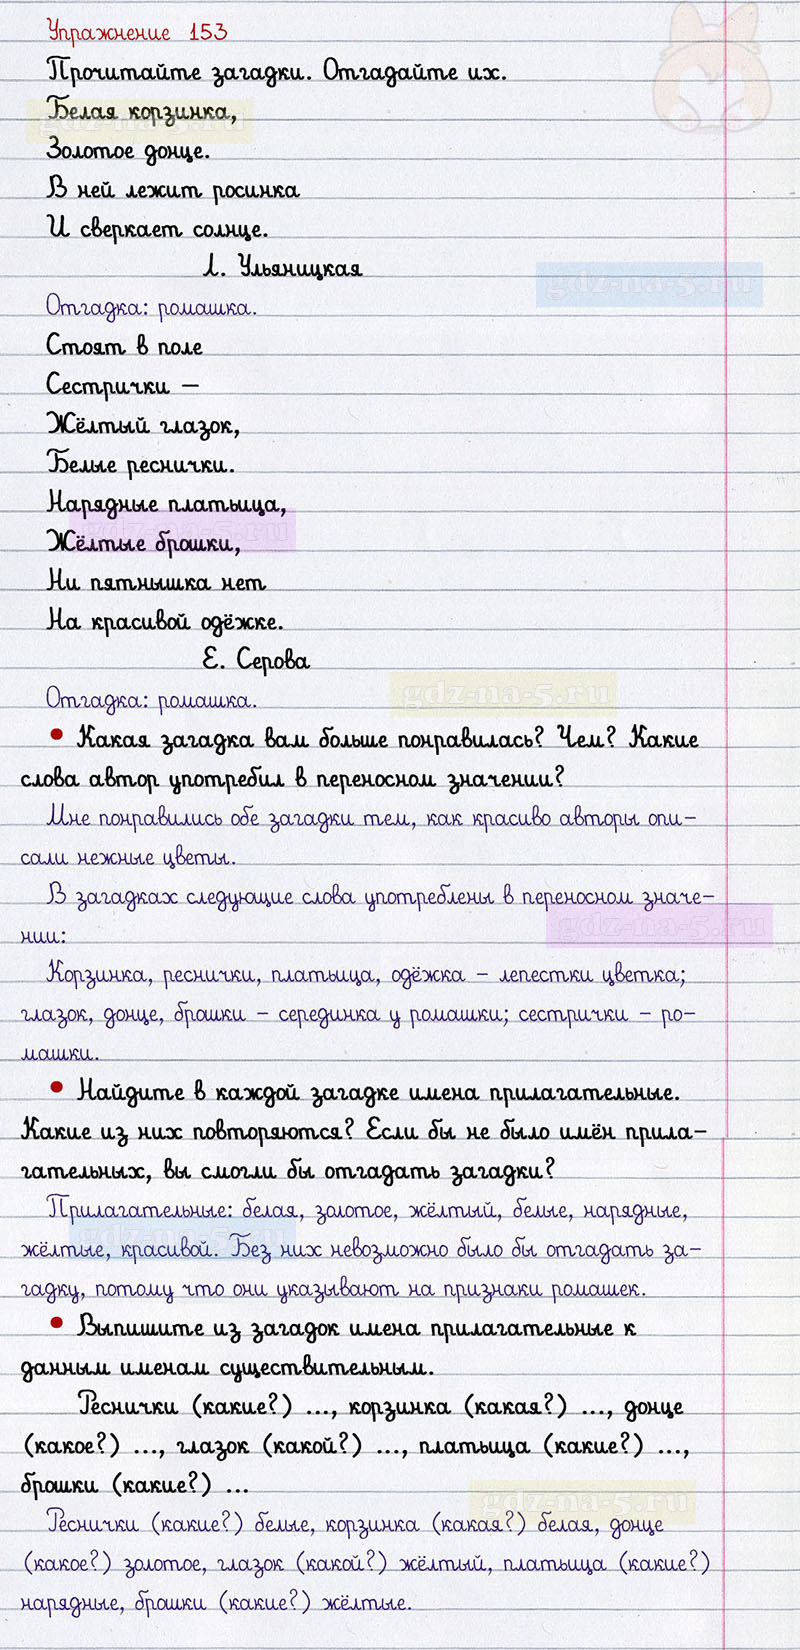 Упражнение 153
Прочитайте загадки. Отгадайте их.
Белая корзинка,
gdz-na-5.ru
Золотое донце.
В ней лежит росинка
И сверкает солнце.
Л. Ульяницкая
gdz-na-5.ru
Отгадка: ромашка.
Стоят в поле
Сестрички –
Жёлтый глазок,
Белые реснички.
Нарядные платьица,
gdz-na-5.ru
Жёлтые брошки,
Ни пятнышка нет
На красивой одёжке.
Е. Серова
Отгадка: ромашка.
gdz-na-5.ru
• Какая загадка вам больше понравилась? Чем? Какие
слова автор употребил в переносном значении?
Мне понравились обе загадки тем, как красиво авторы опи-
сали нежные цветы.
В загадках следующие слова употреблены в переносном значе-
нии:
gdz-na-5.ru
Корзинка, реснички, платьица, одёжка – лепестки цветка;
глазок, донце, брошки – серединка у ромашки; сестрички – ро-
машки.
• Найдите в каждой загадке имена прилагательные.
Какие из них повторяются? Если бы не было имён прила-
гательных, вы смогли бы отгадать загадки?
Прилагательные: белая, золотое, жёлтый, белые, нарядные,
gdz-na-5.ru
жёлтые, красивой. Без них невозможно было бы отгадать за-
гадку, потому что они указывают на признаки ромашек.
• Выпишите из загадок имена прилагательные к
данным именам существительным.
Реснички (какие?) ..., корзинка (какая?) ..., донце
(какое?) ..., глазок (какой?) ..., платьица (какие?) ...,
брошки (какие?) ...
gdz-na-5.ru
Реснички (какие?) белые, корзинка (какая?) белая, донце
(какое?) золотое, глазок (какой?) жёлтый, платьица (какие?)
нарядные, брошки (какие?) жёлтые.